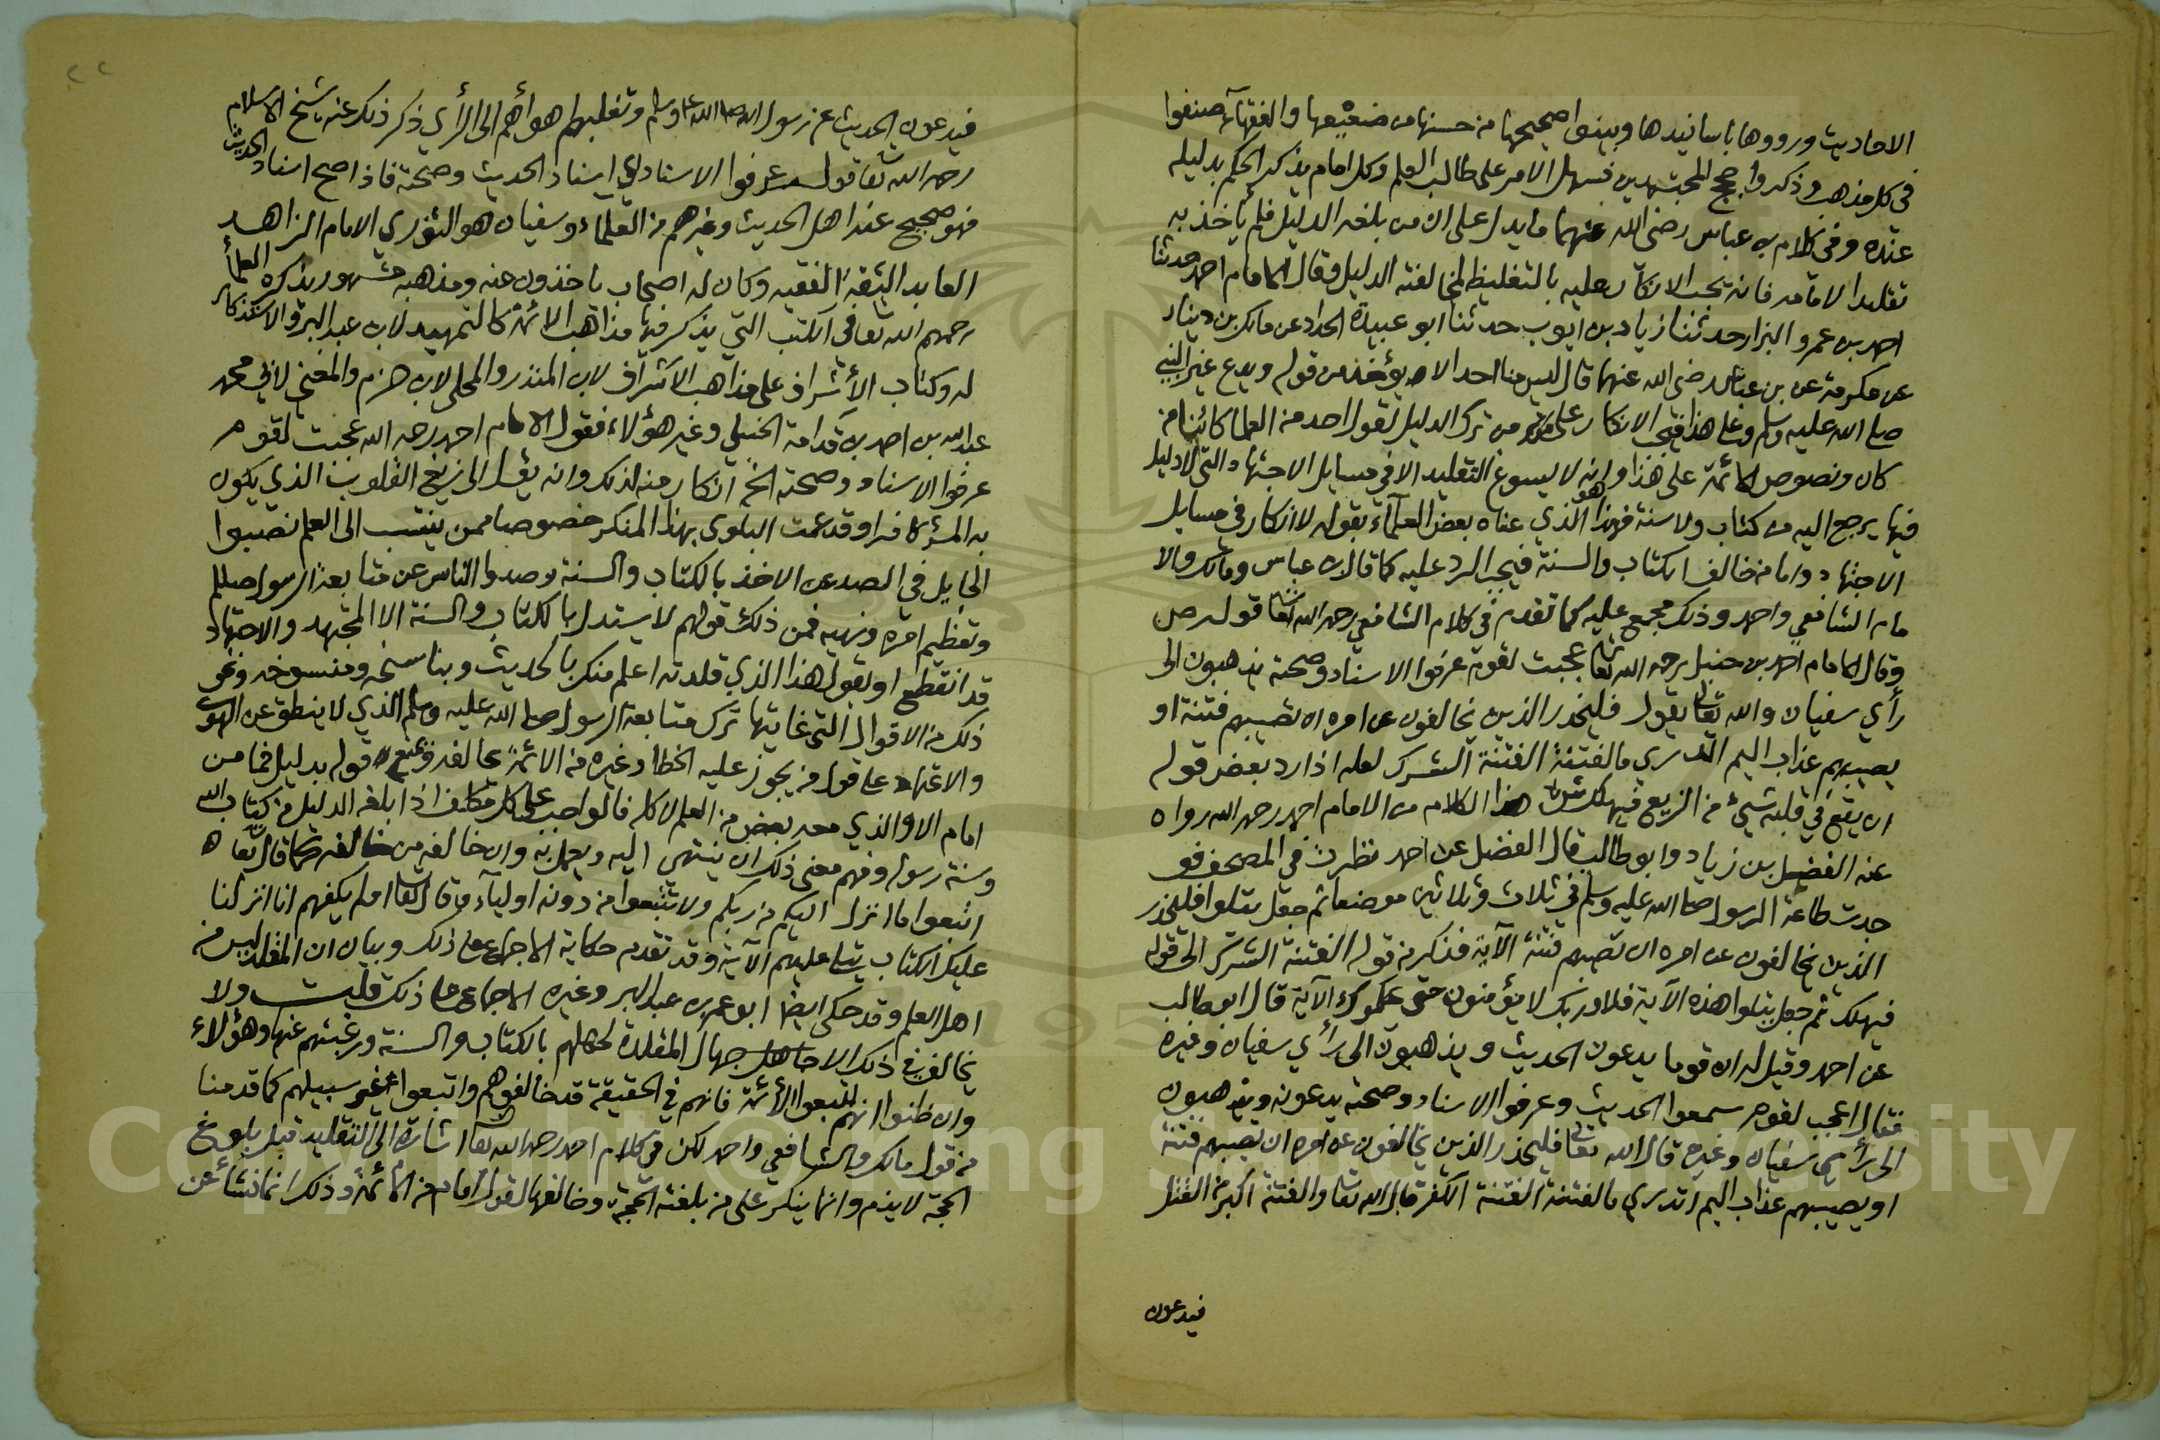 الاحاديث ورووها باسانيدها وبينوا صحيحها من حسنها من ضعيفها والفقهاء صنفوا
في كل مذهب وذكروا حجج المجتهدين فسهل الامر على طالب العلم وكل امام يذكر الحكم بدليله
عنده وفي كلام بن عباس رضي الله عنهما ما يدل على ان من بلغه الدليل فلم يأخذ به
تقليدا لامامه فانه يجب الانكار عليه بالتغليظ لمخالفته الدليل وقال الامام احمد حدثنا
احمد بن عمرو البزار حدثنا زياد بن ايوب حدثنا ابو عبيدة الحداد عن مالك بن دينار
عن عكرمة عن بن عباس رضي الله عنهما قال ليس منا احد الا يؤخذ من قوله ويدع غير النبي
صلى الله عليه وسلم وعلى هذا فيجب الانكار على من ترك الدليل لقول احد من العلما كائنا من
كان ونصوص الائمة على هذا وانه لا يسوغ التقليد الا في مسايل الاجتهاد التي لا دليل
فيها يرجع اليه من كتاب ولا سنة فهذا هو الذي عناه بعض العلماء بقوله لا انكار في مسايل
الاجتهاد واما من خالف الكتاب والسنة فيجب الرد عليه كما قال بن عباس ومالك والا
مام الشافعي واحمد وذلك مجمع عليه كما تقدم في كلام الشافعي رحمه الله تعا قوله ص
وقال الامام احمد بن حنبل رحمه الله تعا عجبت لقوم عرفوا الاسناد وصحته يذهبون الى
رأي سفيان والله تعالى يقول فليحذر الذين يخالفون عن امره ان تصيبهم فتنة او
يصيبهم عذاب اليم اتدري ما الفتنة الفتنة الشرك لعله اذا رد بعض قوله
ان يقع في قلبه شيء من الزيع فيهلك هذا الكلام من الامام احمد رحمه الله رواه
عنه الفضل بن زياد وابو طالب قال الفضل عن احمد نظرت في المصحف فو
جدت طاعة الرسول صلى الله عليه وسلم في ثلاث وثلاثين موضعا ثم جعل يتلوا فليحذر
الذين يخالفون عن امره ان تصيبهم فتنة الآية فذكر من قوله الفتنة الشرك الى قوله
فيهلك ثم جعل يتلوا هذه الآية فلا وربك لا يؤمنون حتى يحكموك الآية قال ابو طالب
عن احمد وقيل له ان قوما يدعون الحديث ويذهبون الى رأي سفيان وغيره
فقال اعجب لقوم سمعوا الحديث وعرفوا الاسناد وصحته يدعونه ويذهبون
الى رأي سفيان وغيره قال الله تعا فليحذر الذين يخالفون عن امره ان تصيبهم فتنة
او يصيبهم عذاب اليم اتدري ما الفتنة الفتنة الكفر قال الله تعا والفتنة اكبر من القتل
فيدعون
٢٢
فيدعون الحديث عن رسول الله صلى الله عليه وسلم وتغلبهم اهواهم الى الرأي ذكر ذلك عنه شيخ الاسلام
رحمه الله تعا قوله عرفوا الاسناد اي اسناد الحديث وصحته فاذا صح اسناد الحديث
فهو صحيح عند اهل الحديث وغيرهم من العلماء وسفيان هو الثوري الامام الزاهد
العابد الثقة الفقيه وكان له اصحاب ياخذون عنه ومذهبه مشهور يذكره العلماء
رحمهم الله تعا في الكتب التي يذكر فيها مذاهب الائمة كالتمهيد لابن عبد البر والاستذكار
له وكتاب الأشراف على مذاهب الاشراف لابن المنذر والمحلى لابن حزم والمغني لابي محمد
عبد الله بن احمد بن قدامة الحنبلي وغير هؤلاء فقول الامام احمد رحمه الله عجبت لقوم
عرفوا الاسناد وصحته الخ انكار منه لذلك وانه يؤل الى زيغ القلوب الذي يكون
به المرؤ كافرا وقد عمت البلوى بهذا المنكر خصوصا ممن ينتسب الى العلم نصبوا
الحبايل في الصد عن الاخذ بالكتاب والسنة وصدوا الناس عن متابعة الرسول صلعم
وتعظيم امره ونهيه فمن ذلك قولهم لا يستدل بالكتاب والسنة الا المجتهد والاجتهاد
قد انقطع او يقول هذا الذي قلدته اعلم منك بالحديث وبناسخه ومنسوخه ونحو
ذلك من الاقوال التي غايتها ترك متابعة الرسول صلى الله عليه وسلم الذي لا ينطق عن الهوى
والاعتماد على قول من يجوز عليه الخطا وغيره من الائمة يخالفه ويمنع قوله بدليل فما من
امام الا والذي معه بعض من العلم لا كله فالواجب على كل مكلف اذا بلغه الدليل من كتاب الله
وسنة رسوله وفهم معنى ذلك ان ينتهى اليه ويعمل به وان خالفه من خالفه كما قال تعا
اتبعوا ما انزل اليكم من ربكم ولا تتبعوا من دونه اولياء وقال تعا اولم يكفهم انا انزلنا
عليك الكتاب يتلى عليهم الآية وقد تقدم حكاية الاجماع على ذلك وبيان ان المقلد ليس من
اهل العلم وقد حكى ايضا ابو عمر بن عبد البر وغيره الاجماع على ذلك قلت ولا
يخالف في ذلك الا جهال المقلدة لجهلهم بالكتاب والسنة ورغبتهم عنها وهؤلاء
وان ظنوا انهم اتبعوا الأئمة فانهم في الحقيقة قد خالفوهم واتبعوا غير سبيلهم كما قدمنا
من قول مالك والشافعي واحمد لكن في كلام احمد رحمه الله تعا اشارة الى ان التقليد قبل بلوغ
الحجة لا يذم وانما ينكر على من بلغته الحجة وخالفها لقول امام من الأئمة وذلك انما نشأ عن
Copyright © King Saud University
1957